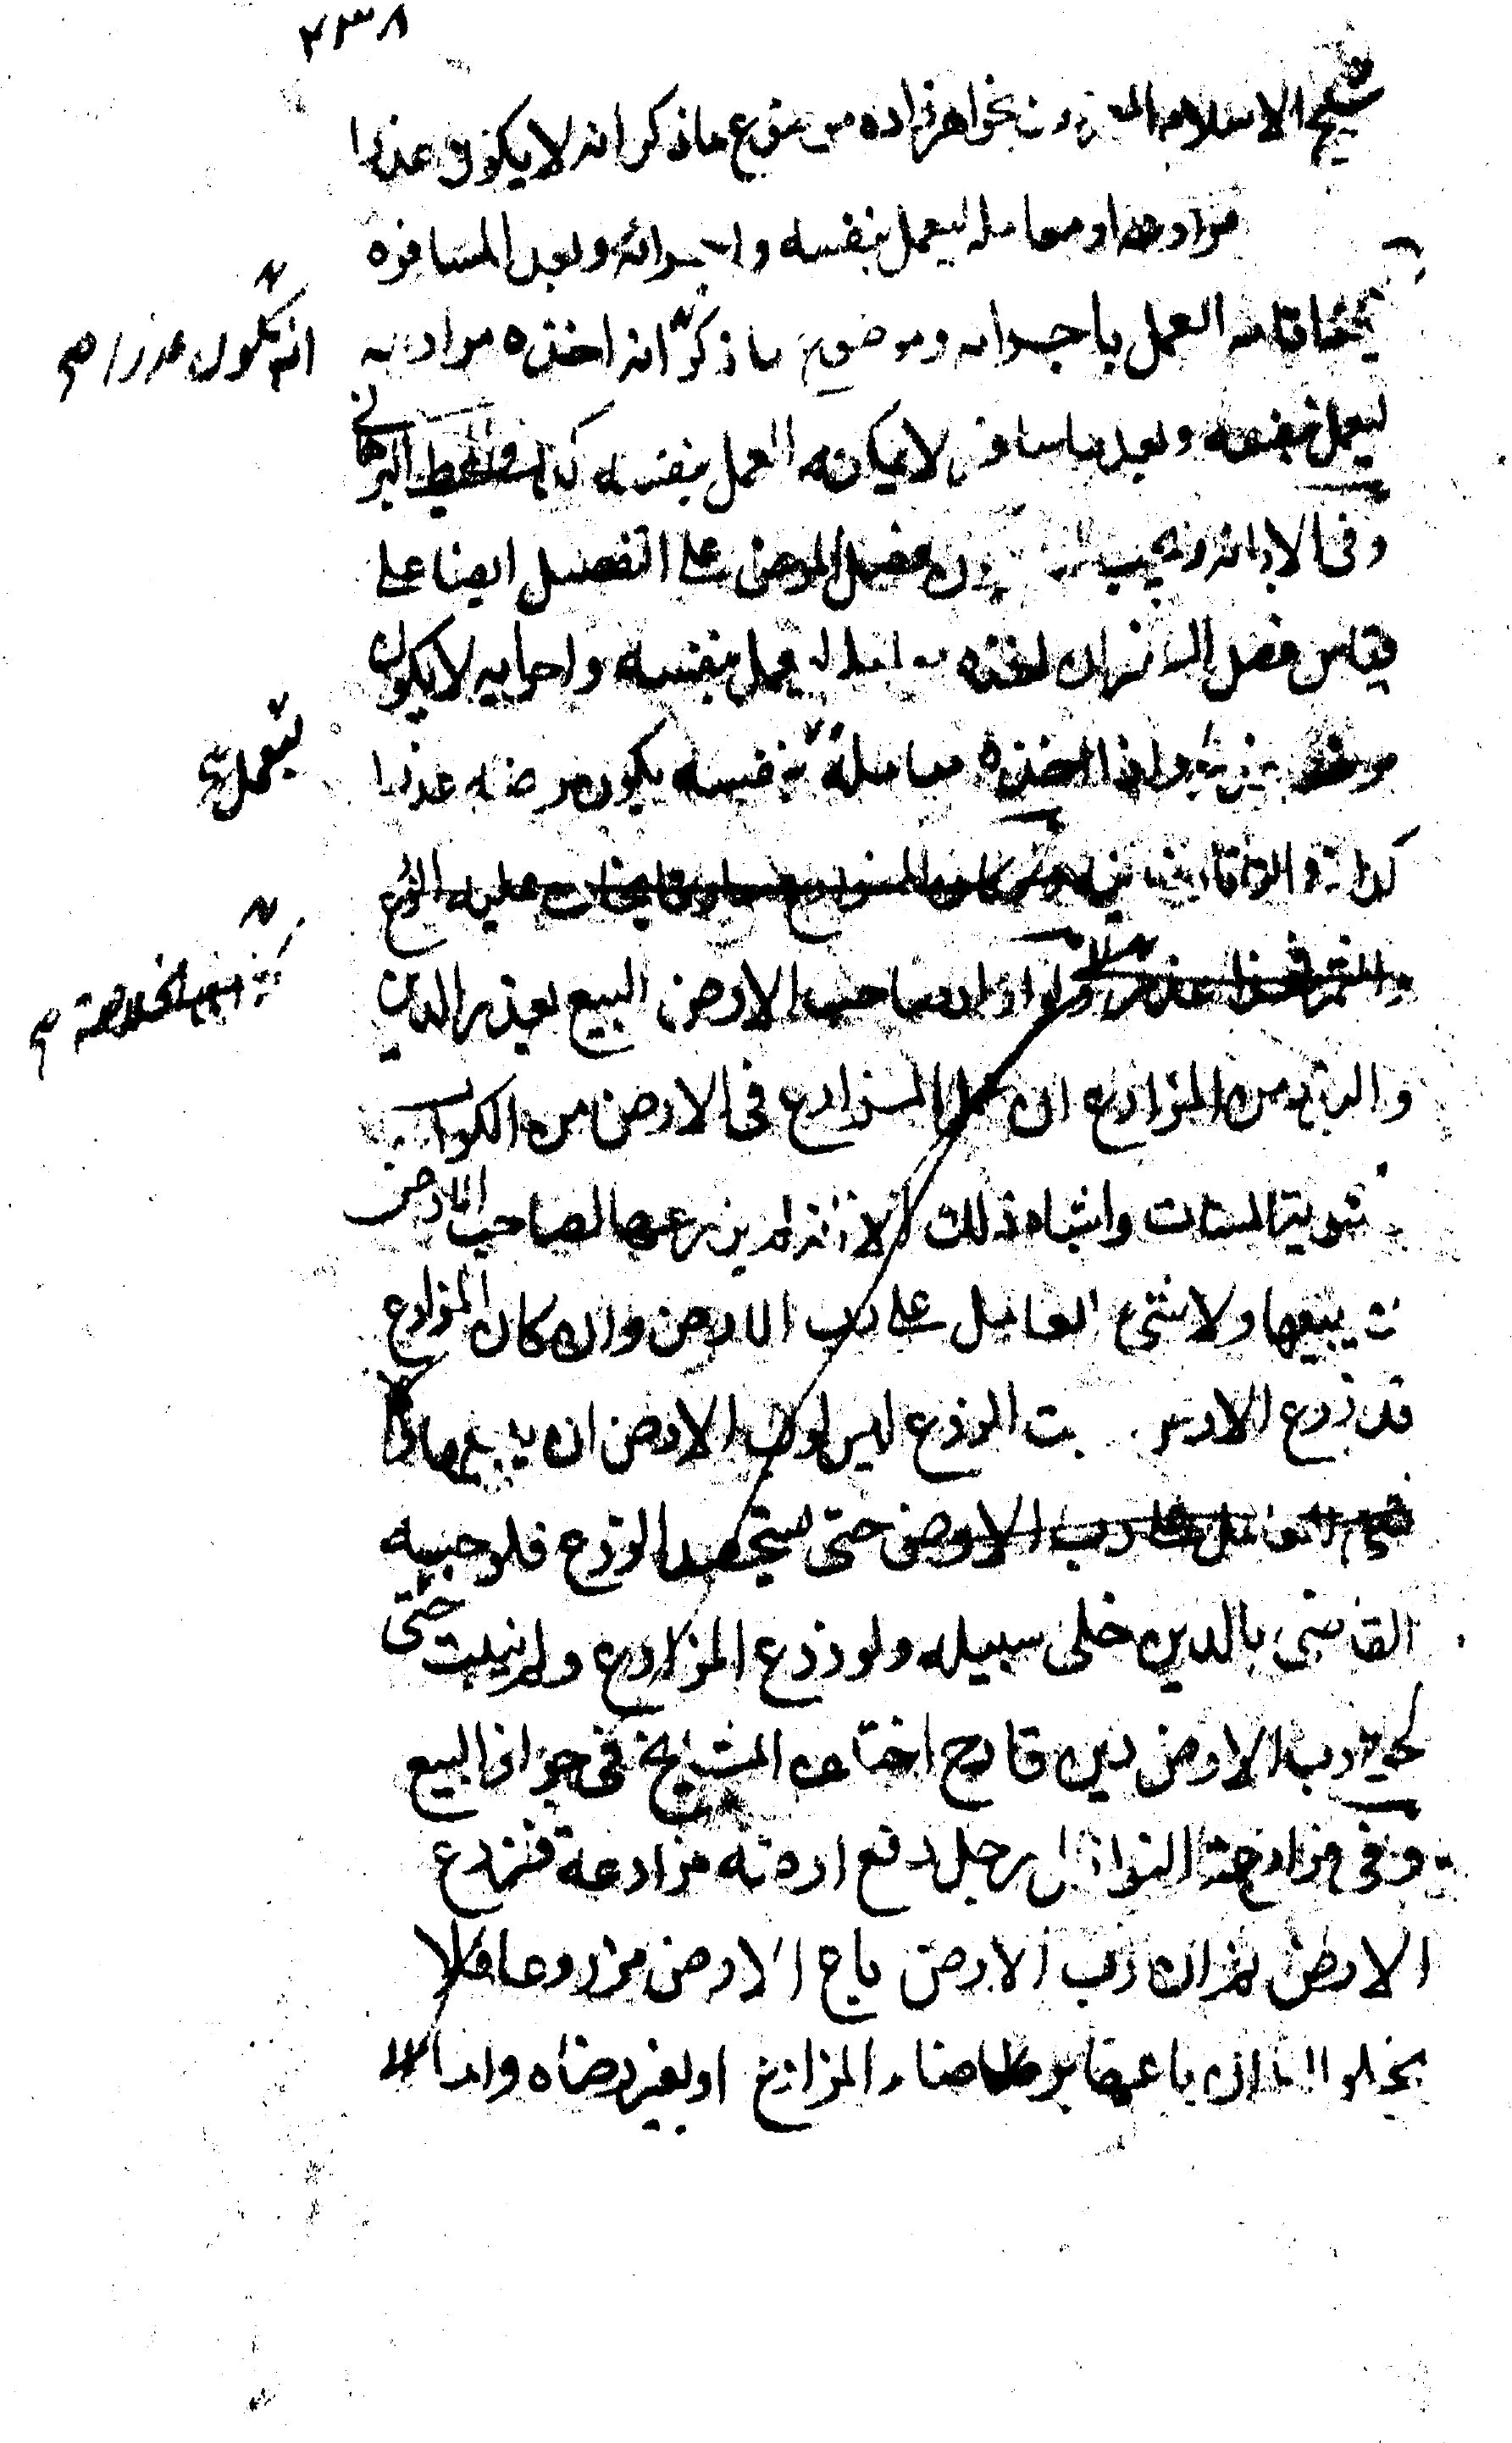 ٢٣٨
شيخ الاسلام المعروف بخواهرزاده موضوع ماذكر انه لا يكون عذرا
مزارعه او معامله ليعمل بنفسه واجرائه وبعد المسافره
يمكنه اقامه العمل باجرائه وموضوع ما ذكر انه اخذه مزارعه
انه يكون عذرا صح
ليعمل بنفسه وبعد ما سافر لا يمكنه العمل بنفسه كذا في المحيط البرهاني
وفي الا يجب ان فصل المرض على التفصيل ايضا على
قياس فصل السفر ان اخذه معاملة ليعمل بنفسه واجرايه لا يكون
مرضه واذا اخذه معاملة بنفسه يكون مرضه عذرا
ليعمل صح
كذا في كان المزارع عليه الزرع
والثمر فهذا عذر ولو اراد صاحب الارض البيع بعذر الدين
الخلاصة صح
والبذر من المزارع ان عمل المزارع في الارض من الكراب
تسوية المسنات واشباه ذلك الا انه لم يزرعها لصاحب الارض
ان يبيعها ولا شئ للعامل على رب الارض وان كان المزارع
قد زرع الارض ونبت الزرع ليس لرب الارض ان يبيعها
العامل على رب الارض حتى يستحصد الزرع فلو حبسه
القاضي بالدين خلى سبيله ولو زرع المزارع ولم ينبت حتى
لحق رب الارض دين فادح اختلف المشايخ في جواز البيع
وفي مزارعة النوازل رجل دفع ارضه مزارعة فزرع
الارض ثم ان رب الارض باع الارض مزروعا فلا
يخلو اما ان باعها برضاء المزارع او بغير رضاه واما